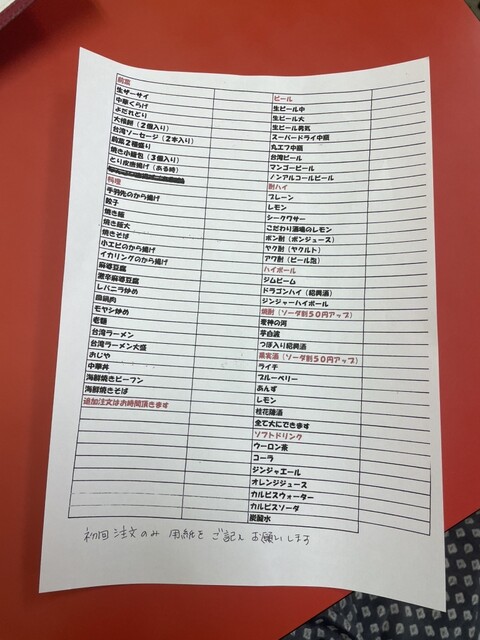 前菜
生ザーサイ
中華くらげ
よだれどり
大根餅（２個入り）
台湾ソーセージ（２本入り）
前菜２種盛り
焼き小籠包（３個入り）
とり皮唐揚げ（ある時）
料理
手羽先のから揚げ
餃子
焼き飯
焼き飯大
焼きそば
小エビのから揚げ
イカリングのから揚げ
麻婆豆腐
激辛麻婆豆腐
レバニラ炒め
回鍋肉
モヤシ炒め
老麺
台湾ラーメン
台湾ラーメン大盛
おじや
中華丼
海鮮焼きビーフン
海鮮焼きそば
追加注文はお時間頂きます
ビール
生ビール中
生ビール大
生ビール男気
スーパードライ中瓶
丸エフ中瓶
台湾ビール
マンゴービール
ノンアルコールビール
酎ハイ
プレーン
レモン
シークワサー
こだわり酒場のレモン
ポン酎（ポンジュース）
ヤク酎（ヤクルト）
アワ酎（ビール泡）
ハイボール
ジムビーム
ドラゴンハイ（紹興酒）
ジンジャーハイボール
焼酎（ソーダ割５０円アップ）
竜神の河
芋白波
つぼ入り紹興酒
果実酒（ソーダ割５０円アップ）
ライチ
ブルーベリー
あんず
レモン
桂花陳酒
全て大にできます
ソフトドリンク
ウーロン茶
コーラ
ジンジャエール
オレンジジュース
カルピスウォーター
カルピスソーダ
炭酸水
初回注文のみ 用紙をご記入お願いします